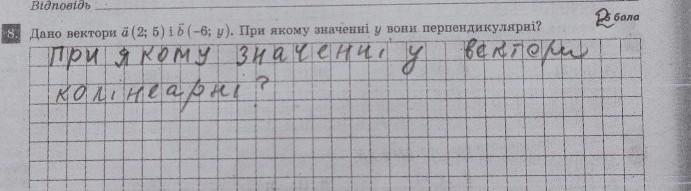 Відповідь
8. Дано вектори a⃗ (2; 5) і b⃗ (–6; y). При якому значенні y вони перпендикулярні?
бала
при якому значенні y вектори
колінеарні?